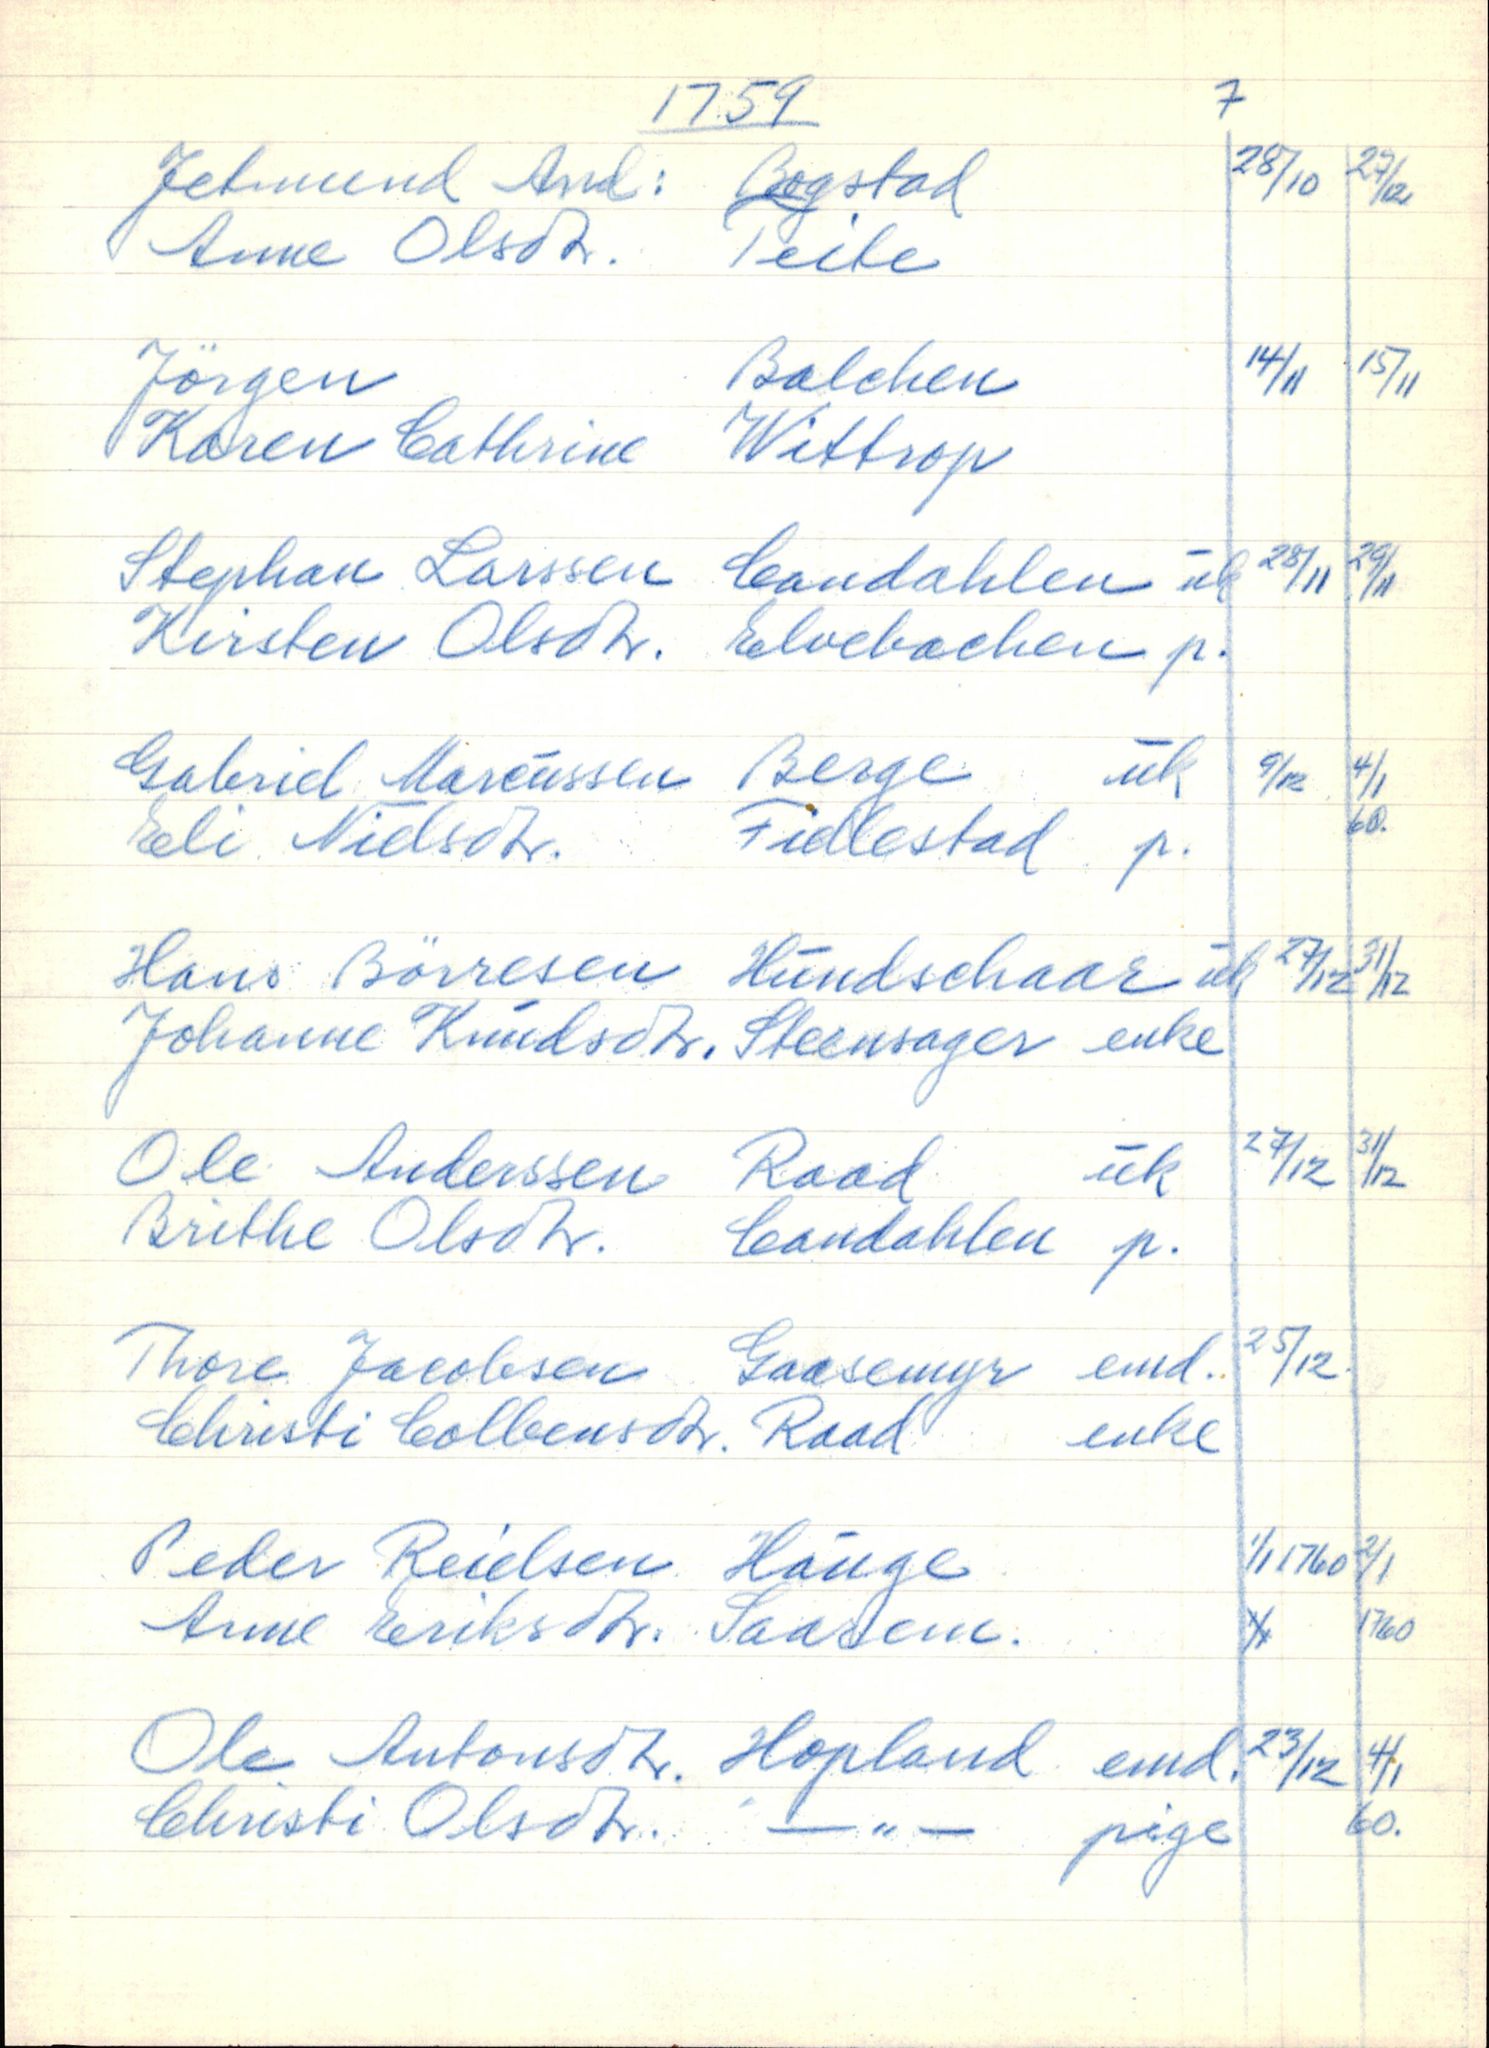 1759 7
Jetmund And: Bogstad 28/10 27/12
Anne Olsdtr. Teite
Jörgen Balchen 14/11 15/11
Karen Cathrine Wittrop
Stephan Larssen Candahlen ük 28/11 29/11
Kirsten Olsdtr. Elvebachen p.
Gabriel Marcüssen Berge ük 9/12 4/1
Eli Nielsdtr. Fidlestad p. 60.
Hans Börresen Hündschaar ük 27/12 31/12
Johanne Knüdsdtr. Steensager enke
Ole Anderssen Raad ük 27/12 31/12
Brithe Olsdtr. Candahlen p.
Thore Jacobsen Gaasemyr emd. 25/12.
Christi Colbensdtr. Raad enke
Peder Reielsen Haüge 1/1 1760 2/1
Anne Eriksdtr. Saasem. 1760
Ole Antonsdtr. Hopland emd. 23/12 4/1
Christi Olsdtr. —"— pige 60.